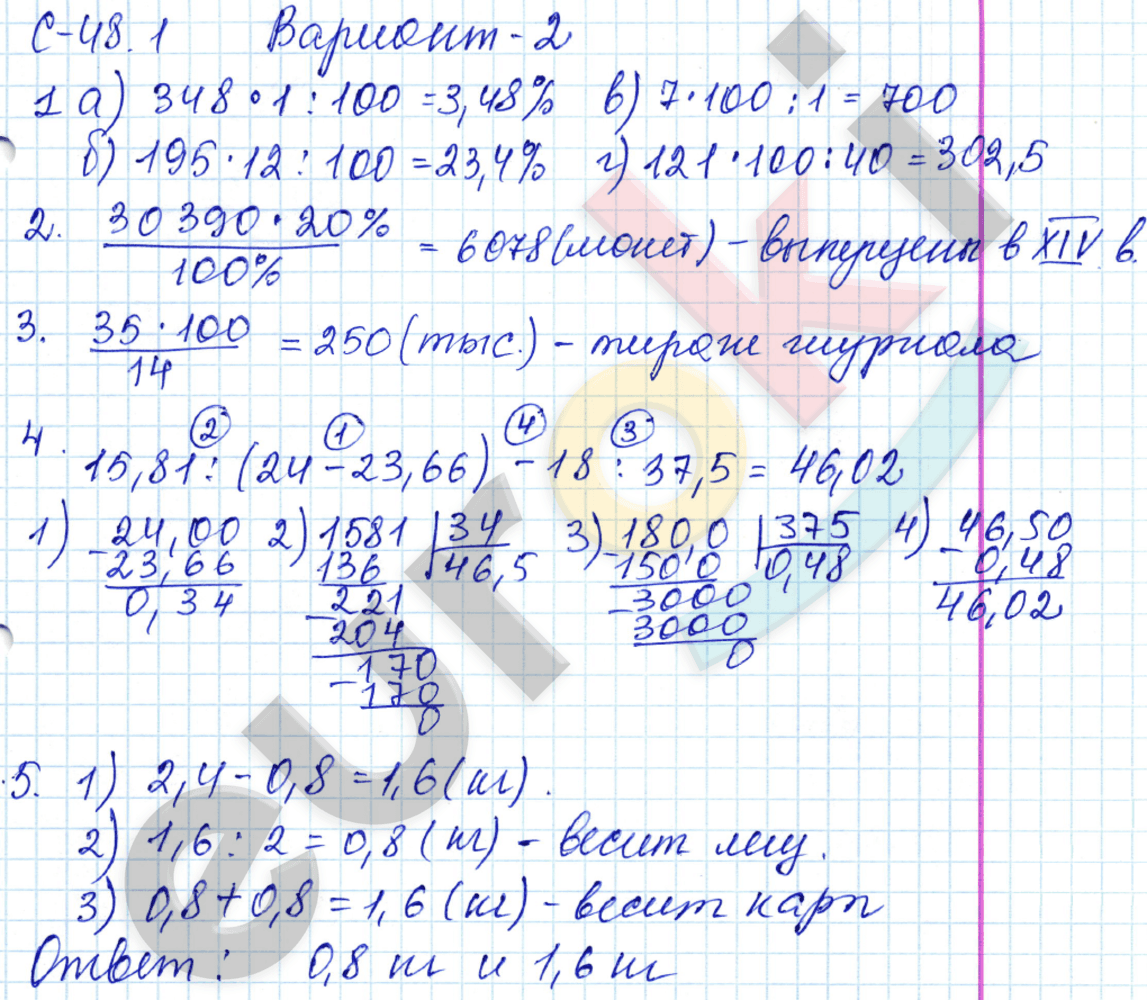 С-48.1 Вариант-2
1 а) 348 • 1 : 100 = 3,48% в) 7 · 100 : 1 = 700
б) 195 · 12 : 100 = 23,4% г) 121 · 100 : 40 = 302,5
2. 30 390 · 20%
100% = 6078 (монет) – выпущены в XIV в.
3. 35 · 100
14 = 250 (тыс.) – тираж журнала
4. ② ① ④ ③
15,81 : (24 – 23,66) – 18 : 37,5 = 46,02
1) 24,00 2) 1581 34 3) 180,0 375 4) 46,50
- 23,66 136 46,5 - 150 0 0,48 - 0,48
0,34 - 221 - 3000 46,02
204 3000
- 170 0
170
0
5. 1) 2,4 – 0,8 = 1,6 (кг).
2) 1,6 : 2 = 0,8 (кг) – весит лещ.
3) 0,8 + 0,8 = 1,6 (кг) – весит карп
Ответ: 0,8 кг и 1,6 кг
euroki